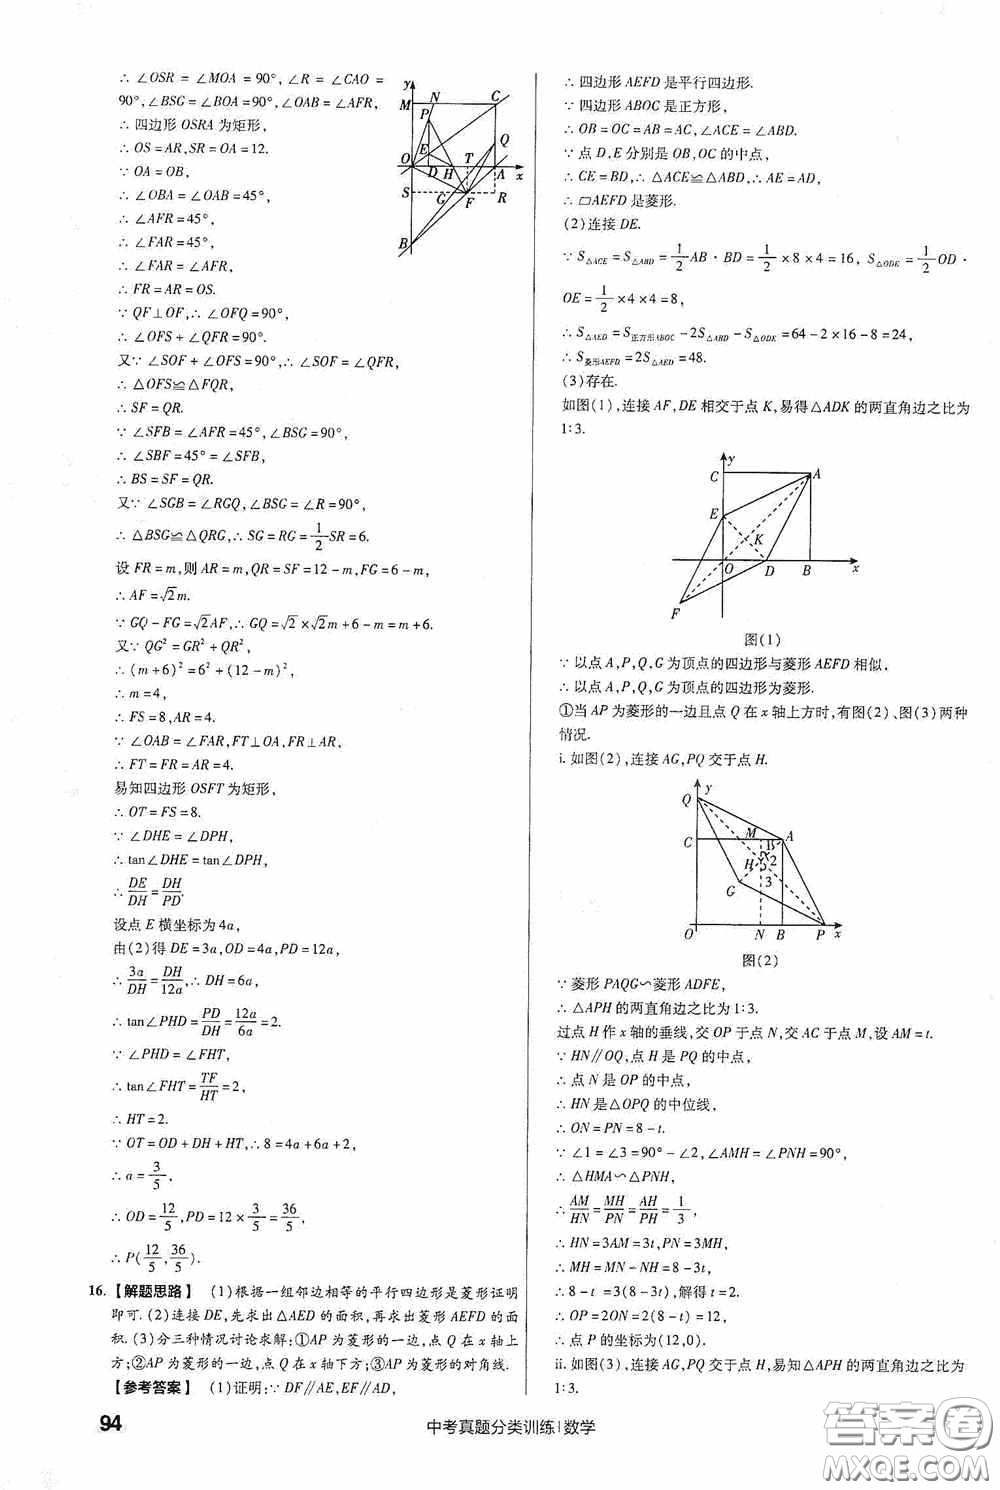 ∴ ∠OSR = ∠MOA = 90°, ∠R = ∠CAO =
90°, ∠BSG = ∠BOA = 90°, ∠OAB = ∠AFR,
∴ 四边形 OSRA 为矩形,
∴ OS = AR, SR = OA = 12.
∵ OA = OB,
∴ ∠OBA = ∠OAB = 45°,
∴ ∠AFR = 45°,
∴ ∠FAR = 45°,
∴ ∠FAR = ∠AFR,
∴ FR = AR = OS.
∵ QF⊥OF, ∴ ∠OFQ = 90°,
∴ ∠OFS + ∠QFR = 90°.
又∵ ∠SOF + ∠OFS = 90°, ∴ ∠SOF = ∠QFR,
∴ △OFS≌△FQR,
∴ SF = QR.
∵ ∠SFB = ∠AFR = 45°, ∠BSG = 90°,
∴ ∠SBF = 45° = ∠SFB,
∴ BS = SF = QR.
又∵ ∠SGB = ∠RGQ, ∠BSG = ∠R = 90°,
∴ △BSG≌△QRG, ∴ SG = RG = 1/2 SR = 6.
设 FR = m, 则 AR = m, QR = SF = 12 - m, FG = 6 - m,
∴ AF = √2m.
∵ GQ - FG = √2AF, ∴ GQ = √2 × √2m + 6 - m = m + 6.
又∵ QG² = GR² + QR²,
∴ (m + 6)² = 6² + (12 - m)²,
∴ m = 4,
∴ FS = 8, AR = 4.
∵ ∠OAB = ∠FAR, FT⊥OA, FR⊥AR,
∴ FT = FR = AR = 4.
易知四边形 OSFT 为矩形,
∴ OT = FS = 8.
∵ ∠DHE = ∠DPH,
∴ tan∠DHE = tan∠DPH,
∴ DE/DH = DH/PD.
设点 E 横坐标为 4a,
由(2)得 DE = 3a, OD = 4a, PD = 12a,
∴ 3a/DH = DH/12a, ∴ DH = 6a,
∴ tan∠PHD = PD/DH = 12a/6a = 2.
∵ ∠PHD = ∠FHT,
∴ tan∠FHT = TF/HT = 2,
∴ HT = 2.
∵ OT = OD + DH + HT, ∴ 8 = 4a + 6a + 2,
∴ a = 3/5,
∴ OD = 12/5, PD = 12 × 3/5 = 36/5,
∴ P(12/5, 36/5).
16. 【解题思路】 (1)根据一组邻边相等的平行四边形是菱形证明
即可. (2)连接 DE, 先求出 △AED 的面积, 再求出菱形 AEFD 的面
积. (3)分三种情况讨论求解: ①AP 为菱形的一边, 点 Q 在 x 轴上
方; ②AP 为菱形的一边, 点 Q 在 x 轴下方; ③AP 为菱形的对角线.
【参考答案】 (1)证明: ∵ DF∥AE, EF∥AD,
y
M N C
P
Q
E
O D H T A x
S G F R
B
∴ 四边形 AEFD 是平行四边形.
∵ 四边形 ABOC 是正方形,
∴ OB = OC = AB = AC, ∠ACE = ∠ABD.
∵ 点 D, E 分别是 OB, OC 的中点,
∴ CE = BD, ∴ △ACE≌△ABD, ∴ AE = AD,
∴ ▱AEFD 是菱形.
(2)连接 DE.
∵ S△ACE = S△ABD = 1/2 AB · BD = 1/2 × 8 × 4 = 16, S△ODE = 1/2 OD ·
OE = 1/2 × 4 × 4 = 8,
∴ S△AED = S正方形ABOC - 2S△ABD - S△ODE = 64 - 2 × 16 - 8 = 24,
∴ S菱形AEFD = 2S△AED = 48.
(3)存在.
如图(1), 连接 AF, DE 相交于点 K, 易得 △ADK 的两直角边之比为
1:3.
y
C A
E
K
O D B x
F
图(1)
∵ 以点 A, P, Q, G 为顶点的四边形与菱形 AEFD 相似,
∴ 以点 A, P, Q, G 为顶点的四边形为菱形.
①当 AP 为菱形的一边且点 Q 在 x 轴上方时, 有图(2)、图(3)两种
情况.
i. 如图(2), 连接 AG, PQ 交于点 H.
y
Q
C M A
1
H 2
G 3
O N B P x
图(2)
∵ 菱形 PAQG∽菱形 ADFE,
∴ △APH 的两直角边之比为 1:3.
过点 H 作 x 轴的垂线, 交 OP 于点 N, 交 AC 于点 M, 设 AM = t.
∵ HN∥OQ, 点 H 是 PQ 的中点,
∴ 点 N 是 OP 的中点,
∴ HN 是 △OPQ 的中位线,
∴ ON = PN = 8 - t.
∵ ∠1 = ∠3 = 90° - ∠2, ∠AMH = ∠PNH = 90°,
∴ △HMA∽△PNH,
∴ AM/HN = MH/PN = AH/PH = 1/3,
∴ HN = 3AM = 3t, PN = 3MH,
∴ MH = MN - HN = 8 - 3t.
∴ 8 - t = 3(8 - 3t), 解得 t = 2.
∴ OP = 2ON = 2(8 - t) = 12,
∴ 点 P 的坐标为(12, 0).
ii. 如图(3), 连接 AG, PQ 交于点 H, 易知 △APH 的两直角边之比为
1:3.
94
中考真题分类训练|数学
答案圈
MXQE.COM